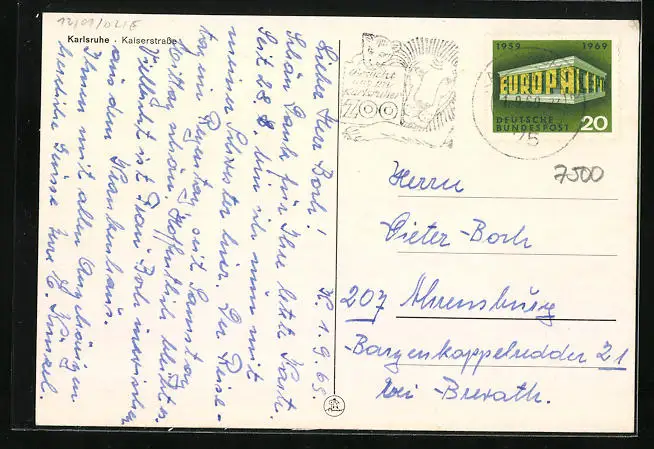 12/01/02/E
Karlsruhe · Kaiserstraße
K. 1.9.69.
Lieber Herr Boch!
Schön Dank für Ihre letzte Karte.
Seit 28.8. bin ich nun mit
meiner Schwester hier. Der Reise-
tag ein Regentag, seit Samstag
Mittag schön, hoffentlich bleibt es.
Vielleicht ist Frau Boch inzwischen
aus dem Krankenhaus.
Ihnen mit allen Angehörigen
herzliche Grüsse Ihre
Karlsruhe
ZOO
1959 1969
EUROPA CEPT
DEUTSCHE
BUNDESPOST 20
75
7500
Herrn
Dieter Boch
207 Ahrensburg
Bargenkoppelredder 21
bei Brerath.